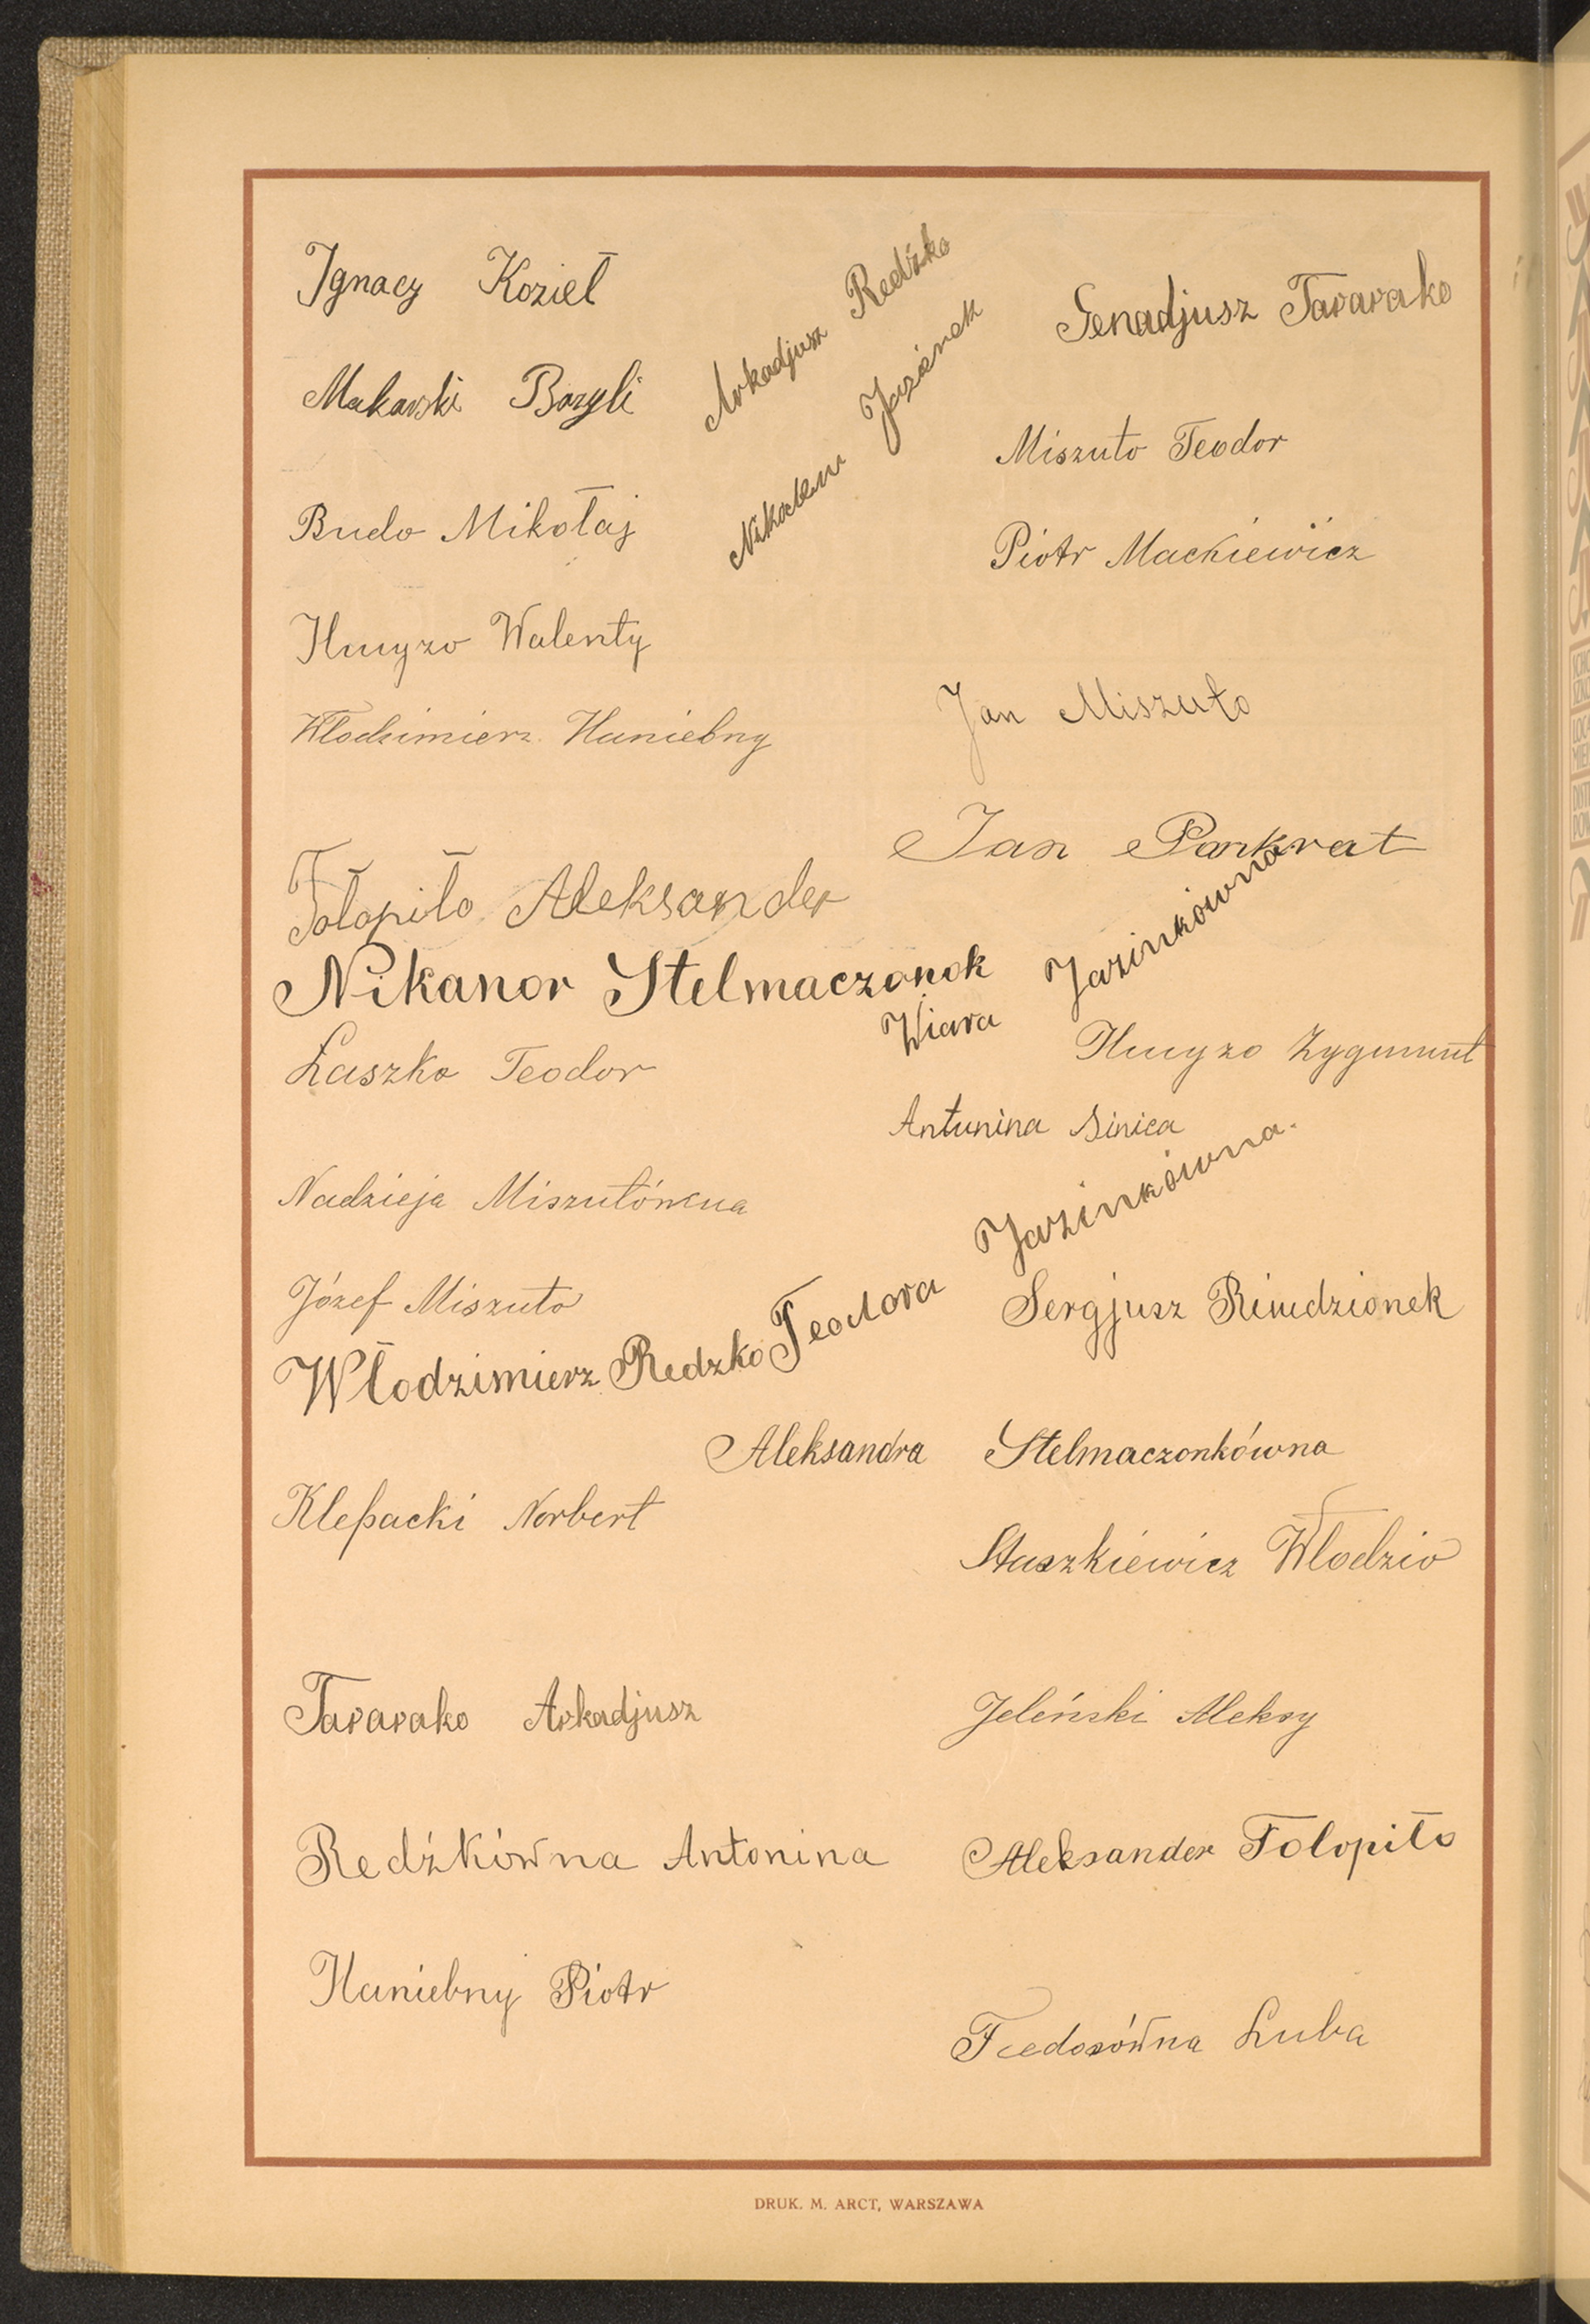 Ignacy Kozieł
Arkadjusz Redźko
Genadjusz Tararako
Makarski Bazyli
Jazienek
Miszuto Teodor
Budo Mikołaj
Piotr Mackiewicz
Hmyzo Walenty
Jan Miszuto
Włodzimierz Haniebny
Jan Pankrat
Tołopiło Aleksander
Nikanor Stelmaczonok
Wiara Jazinkówna
Laszko Teodor
Hmyzo Zygmunt
Antunina Sinica
Nadzieja Miszutówna
Teodora Jazinkówna.
Józef Miszuto
Sergjusz Rindzionek
Włodzimierz Redzko
Aleksandra Stelmaczonkówna
Klepacki Norbert
Staszkiewicz Włodzio
Tararako Arkadjusz
Jeleński Aleksy
Redźkówna Antonina
Aleksander Tolopiło
Haniebny Piotr
Fiedosówna Luba
DRUK. M. ARCT, WARSZAWA